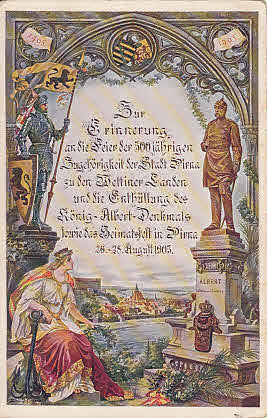 1905
Zur
Erinnerung
an die Feier der 500 jährigen
Zugehörigkeit der Stadt Pirna
zu den Wettiner Landen
und die Enthüllung des
König-Albert-Denkmals
sowie das Heimatsfest in Pirna
26.-28. August 1905.
ALBERT